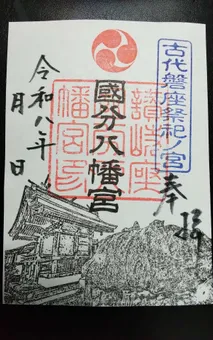 古代磐座祭祀ノ宮
奉拝
讃岐座
國分八幡宮
幡宮
令和八年
月 日